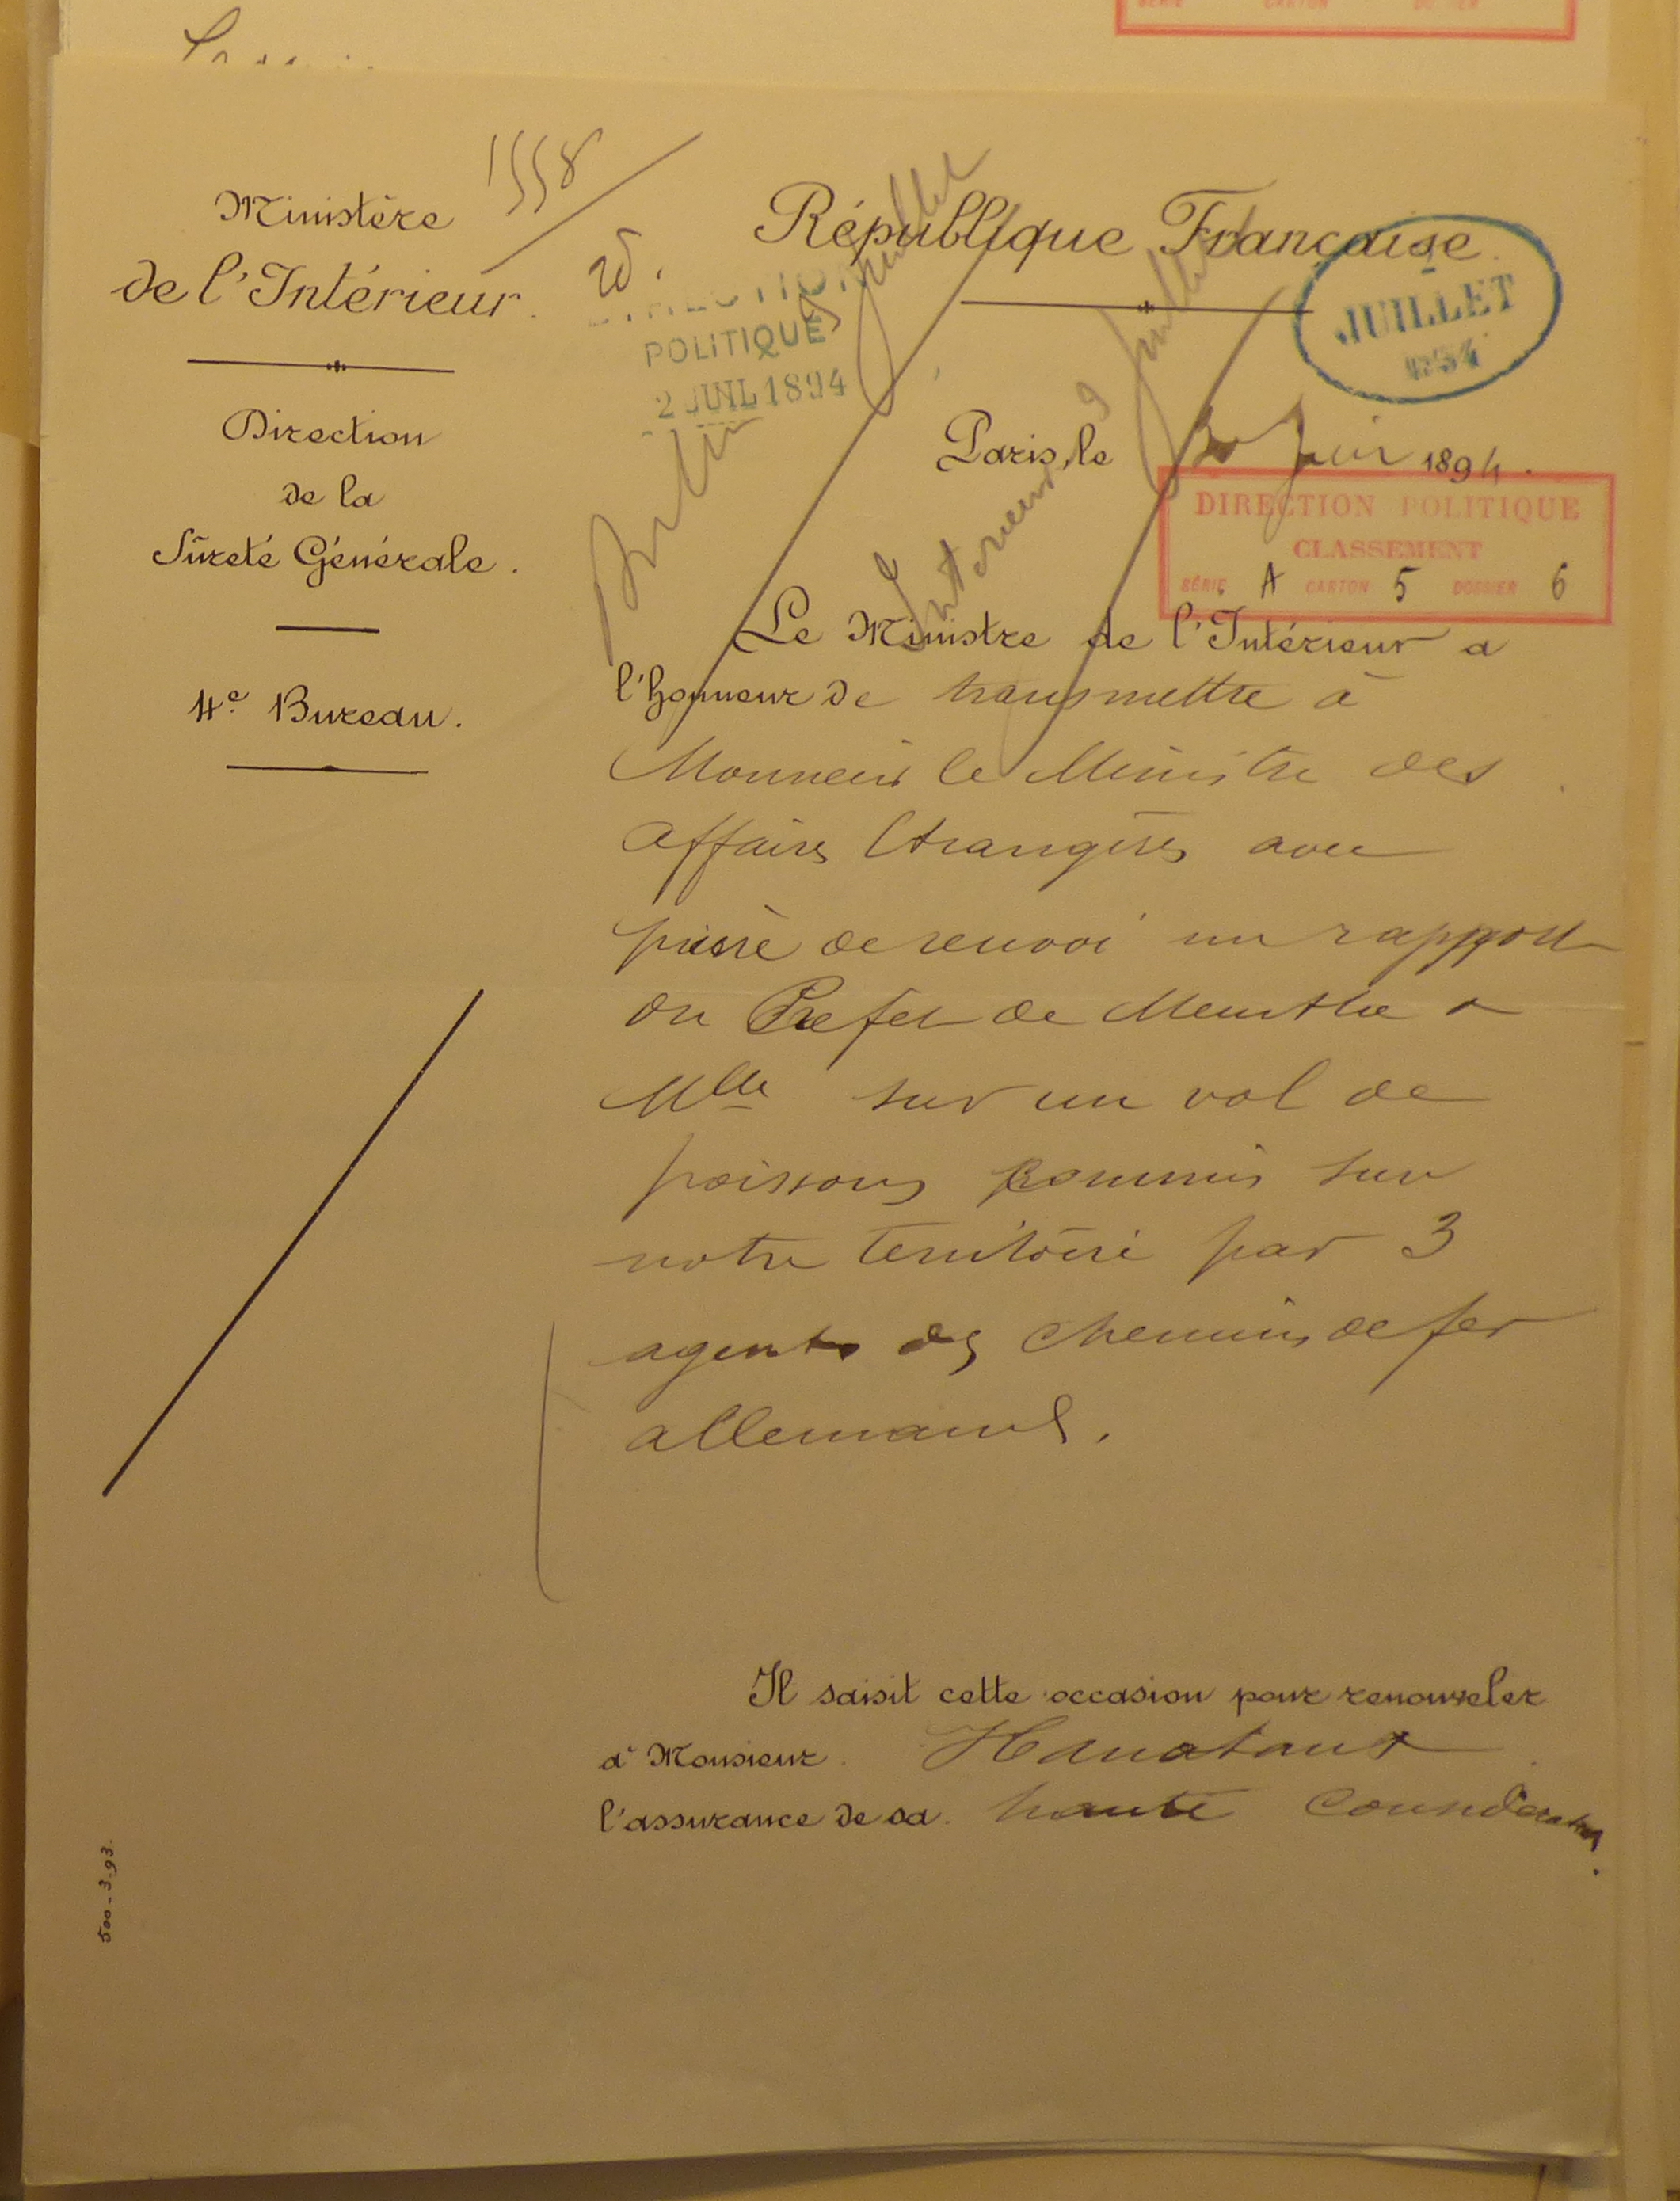 1558
Ministère
de l'Intérieur.
Direction
de la
Sûreté Générale.
4e Bureau.
République Française
DIRECTION
POLITIQUE
2 JUIL 1894
JUILLET
1894
Paris, le 30 Juin 1894.
Berlin juillet
Intérieur 9 juillet
DIRECTION POLITIQUE
CLASSEMENT
SÉRIE A CARTON 5 DOSSIER 6
Le Ministre de l'Intérieur a
l'honneur de transmettre à
Monsieur le Ministre des
Affaires Etrangères avec
prière de renvoi un rapport
du Préfet de Meurthe &
Mlle sur un vol de
poissons commis sur
notre territoire par 3
agents des chemins de fer
allemands.
Il saisit cette occasion pour renouveler
à Monsieur Hanotaux
l'assurance de sa haute Considération.
500-3-93.